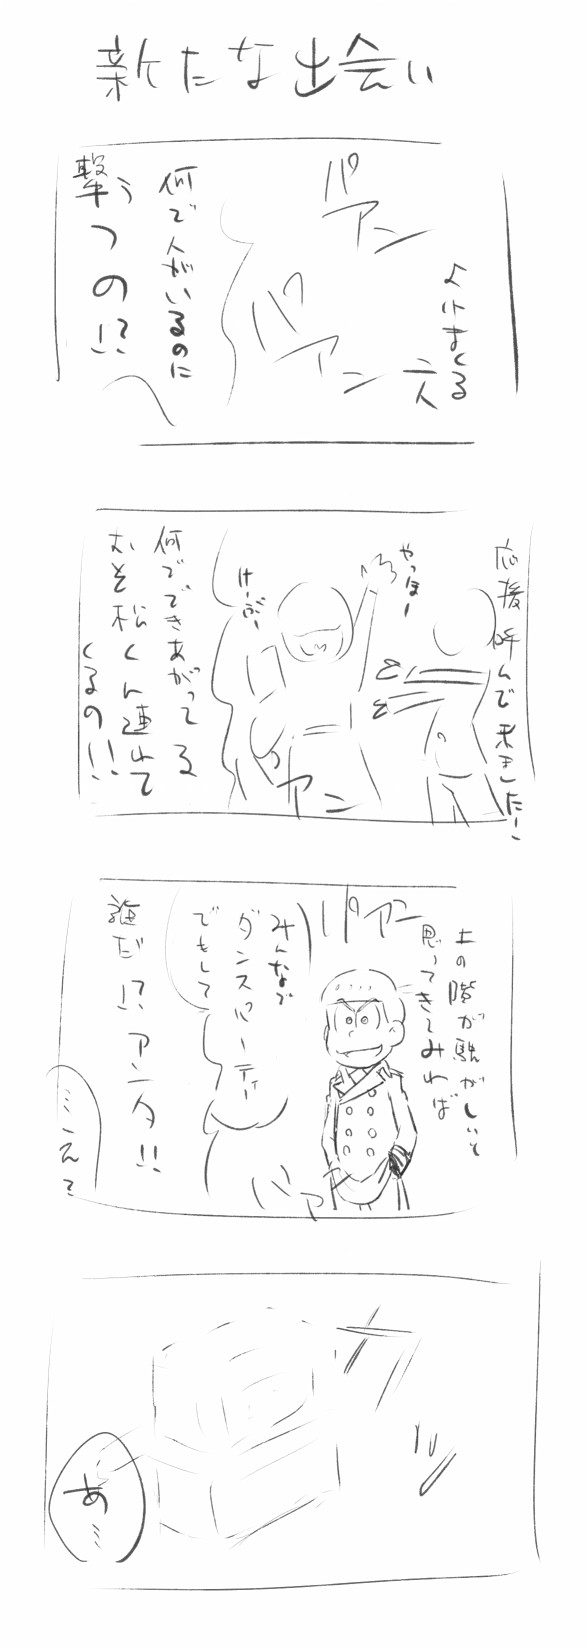 新たな出会い
パアン
よけまくる
二人
パアン
何で人がいるのに
撃つの!?
応援呼んで来ました!
やっほー
けーぶー
アン
何でできあがってる
おそ松くん連れて
くるの!!
上の階が騒がしいと
思ってきてみれば
パアン
みんなで
ダンスパーティー
でもして
パア
誰だ!?アンタ!!
ミえ?
ア
ッ
あ…